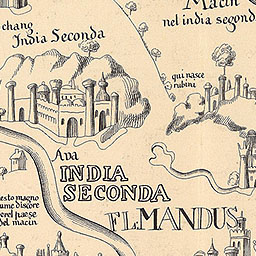 chang
India Seconda
Macin
nel india segond
qui nasce
rubini
Ava
INDIA
SECONDA
esto magno
ume discore
perel paese
del macin
FL MANDUS